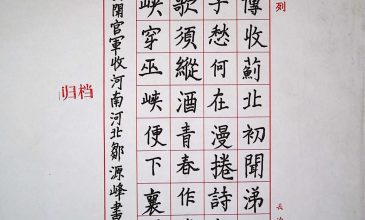 列
長
傳收薊北初聞涕
子愁何在漫捲詩
歌須縱酒青春作
峽穿巫峽便下襄
聞官軍收河南河北鄒源峰書
归档